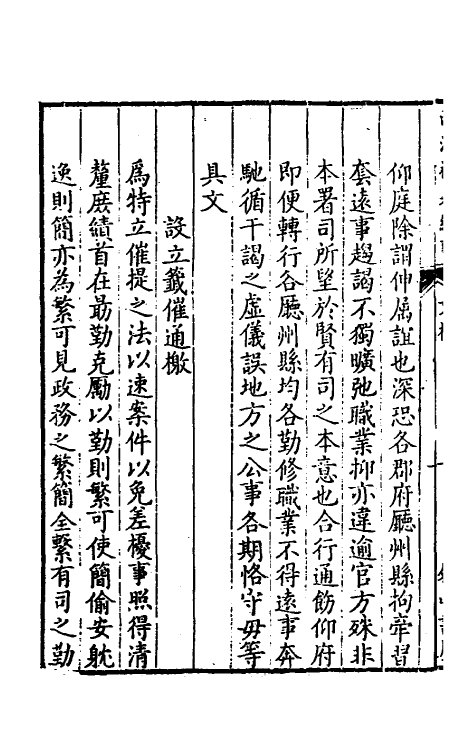 仰庭除謂伸属誼也深恐各郡府廳州縣拘牽習
套遠事趨謁不獨曠弛職業抑亦違逾官方殊非
本署司所望於賢有司之本意也合行通飭仰府
即便轉行各廳州縣均各勤修職業不得遠事奔
馳循干謁之虛儀誤地方之公事各期恪守毋等
具文
設立籤催通檄
爲特立催提之法以速案件以免差擾事照得清
釐庶績首在最勤克勵以勤則繁可使簡偷安躭
逸則簡亦為繁可見政務之繁簡全繫有司之勤